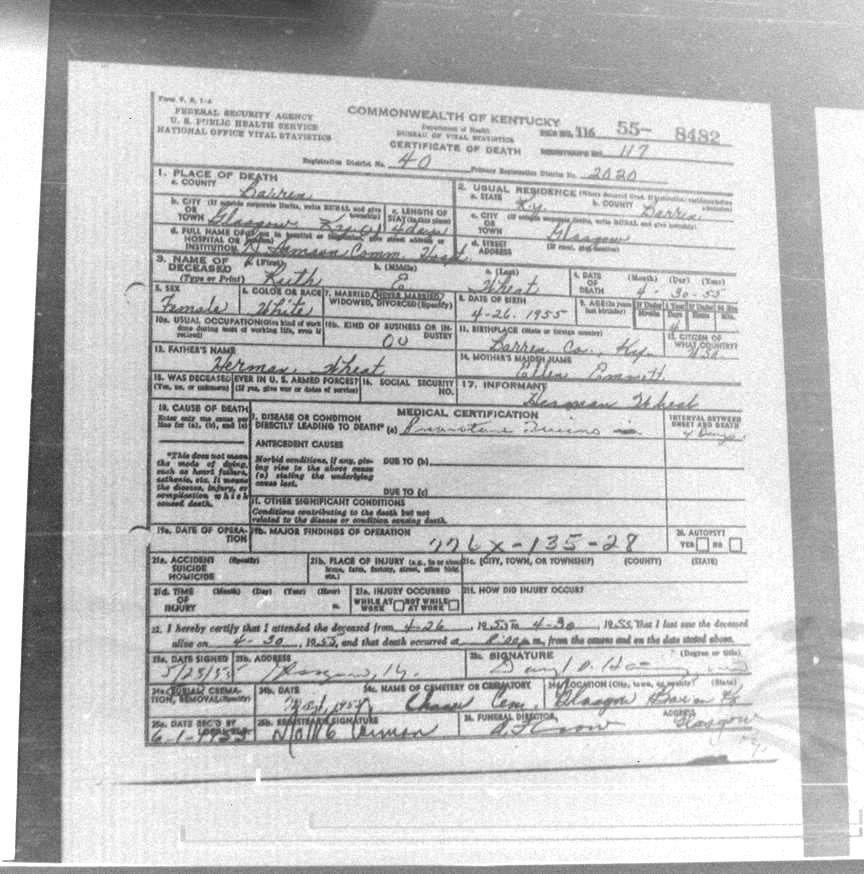 Form V. S. 1-A
FEDERAL SECURITY AGENCY
U. S. PUBLIC HEALTH SERVICE
NATIONAL OFFICE VITAL STATISTICS
COMMONWEALTH OF KENTUCKY
Department of Health
BUREAU OF VITAL STATISTICS
CERTIFICATE OF DEATH
116 55- 8482
117
Registration District No. 40
Primary Registration District No. 2020
1. PLACE OF DEATH
a. COUNTY Barren
b. CITY (If outside corporate limits, write RURAL and give township)
OR TOWN Glasgow
c. LENGTH OF STAY (in this place) 4 days
d. FULL NAME OF (If not in hospital or institution, give street address or location)
HOSPITAL OR INSTITUTION Samson Comm. Hospt.
2. USUAL RESIDENCE (Where deceased lived. If institution: residence before admission)
a. STATE Ky. b. COUNTY Barren
c. CITY (If outside corporate limits, write RURAL and give township)
OR TOWN Glasgow
d. STREET ADDRESS (If rural, give location)
3. NAME OF DECEASED (Type or Print)
a. (First) Ruth
b. (Middle) E
c. (Last) Wheat
4. DATE OF DEATH (Month) (Day) (Year) 4-30-55
5. SEX Female
6. COLOR OR RACE White
7. MARRIED, NEVER MARRIED, WIDOWED, DIVORCED (Specify)
8. DATE OF BIRTH 4-26-1955
9. AGE (In years last birthday) If Under 1 Year Months Days If Under 24 Hrs Hours Min.
4
10a. USUAL OCCUPATION (Give kind of work done during most of working life, even if retired)
10b. KIND OF BUSINESS OR INDUSTRY
11. BIRTHPLACE (State or foreign country) Barren Co., Ky.
12. CITIZEN OF WHAT COUNTRY? USA
13. FATHER'S NAME Herman Wheat
14. MOTHER'S MAIDEN NAME Ellen Emmitt
15. WAS DECEASED EVER IN U. S. ARMED FORCES?
(Yes, no, or unknown) (If yes, give war or dates of service)
16. SOCIAL SECURITY NO.
17. INFORMANT Herman Wheat
18. CAUSE OF DEATH
Enter only one cause per line for (a), (b), and (c)
*This does not mean the mode of dying, such as heart failure, asthenia, etc. It means the disease, injury, or complication which caused death.
MEDICAL CERTIFICATION
I. DISEASE OR CONDITION DIRECTLY LEADING TO DEATH* (a)
INTERVAL BETWEEN ONSET AND DEATH
4 Days
ANTECEDENT CAUSES
Morbid conditions, if any, giving rise to the above cause (a) stating the underlying cause last.
DUE TO (b)
DUE TO (c)
II. OTHER SIGNIFICANT CONDITIONS
Conditions contributing to the death but not related to the disease or condition causing death.
19a. DATE OF OPERATION
19b. MAJOR FINDINGS OF OPERATION
776x-135-28
20. AUTOPSY? YES NO
21a. ACCIDENT SUICIDE HOMICIDE (Specify)
21b. PLACE OF INJURY (e.g., in or about home, farm, factory, street, office bldg. etc.)
21c. (CITY, TOWN, OR TOWNSHIP) (COUNTY) (STATE)
21d. TIME OF INJURY (Month) (Day) (Year) (Hour) m.
21e. INJURY OCCURRED WHILE AT WORK NOT WHILE AT WORK
21f. HOW DID INJURY OCCUR?
22. I hereby certify that I attended the deceased from 4-26, 1955 to 4-30, 1955, that I last saw the deceased
alive on 4-30, 1955, and that death occurred at m., from the causes and on the date stated above.
23a. DATE SIGNED 5/25/55
23b. ADDRESS Glasgow, Ky.
23c. SIGNATURE (Degree or title)
24a. BURIAL, CREMATION, REMOVAL (Specify)
24b. DATE
24c. NAME OF CEMETERY OR CREMATORY Cem.
24d. LOCATION (City, town, or county) (State) Glasgow
25a. DATE REC'D BY LOCAL REG. 6-1-1955
25b. REGISTRAR'S SIGNATURE
26. FUNERAL DIRECTOR
ADDRESS Glasgow
Ky.